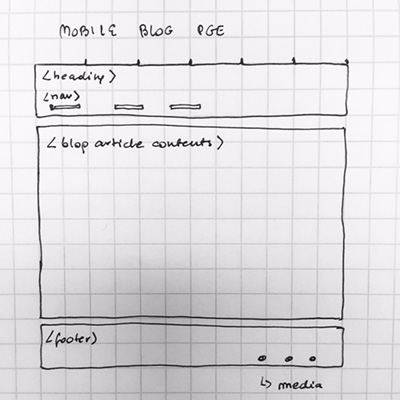 MOBILE BLOG PGE
<heading>
<nav>
<blog article contents>
<footer>
↳ media